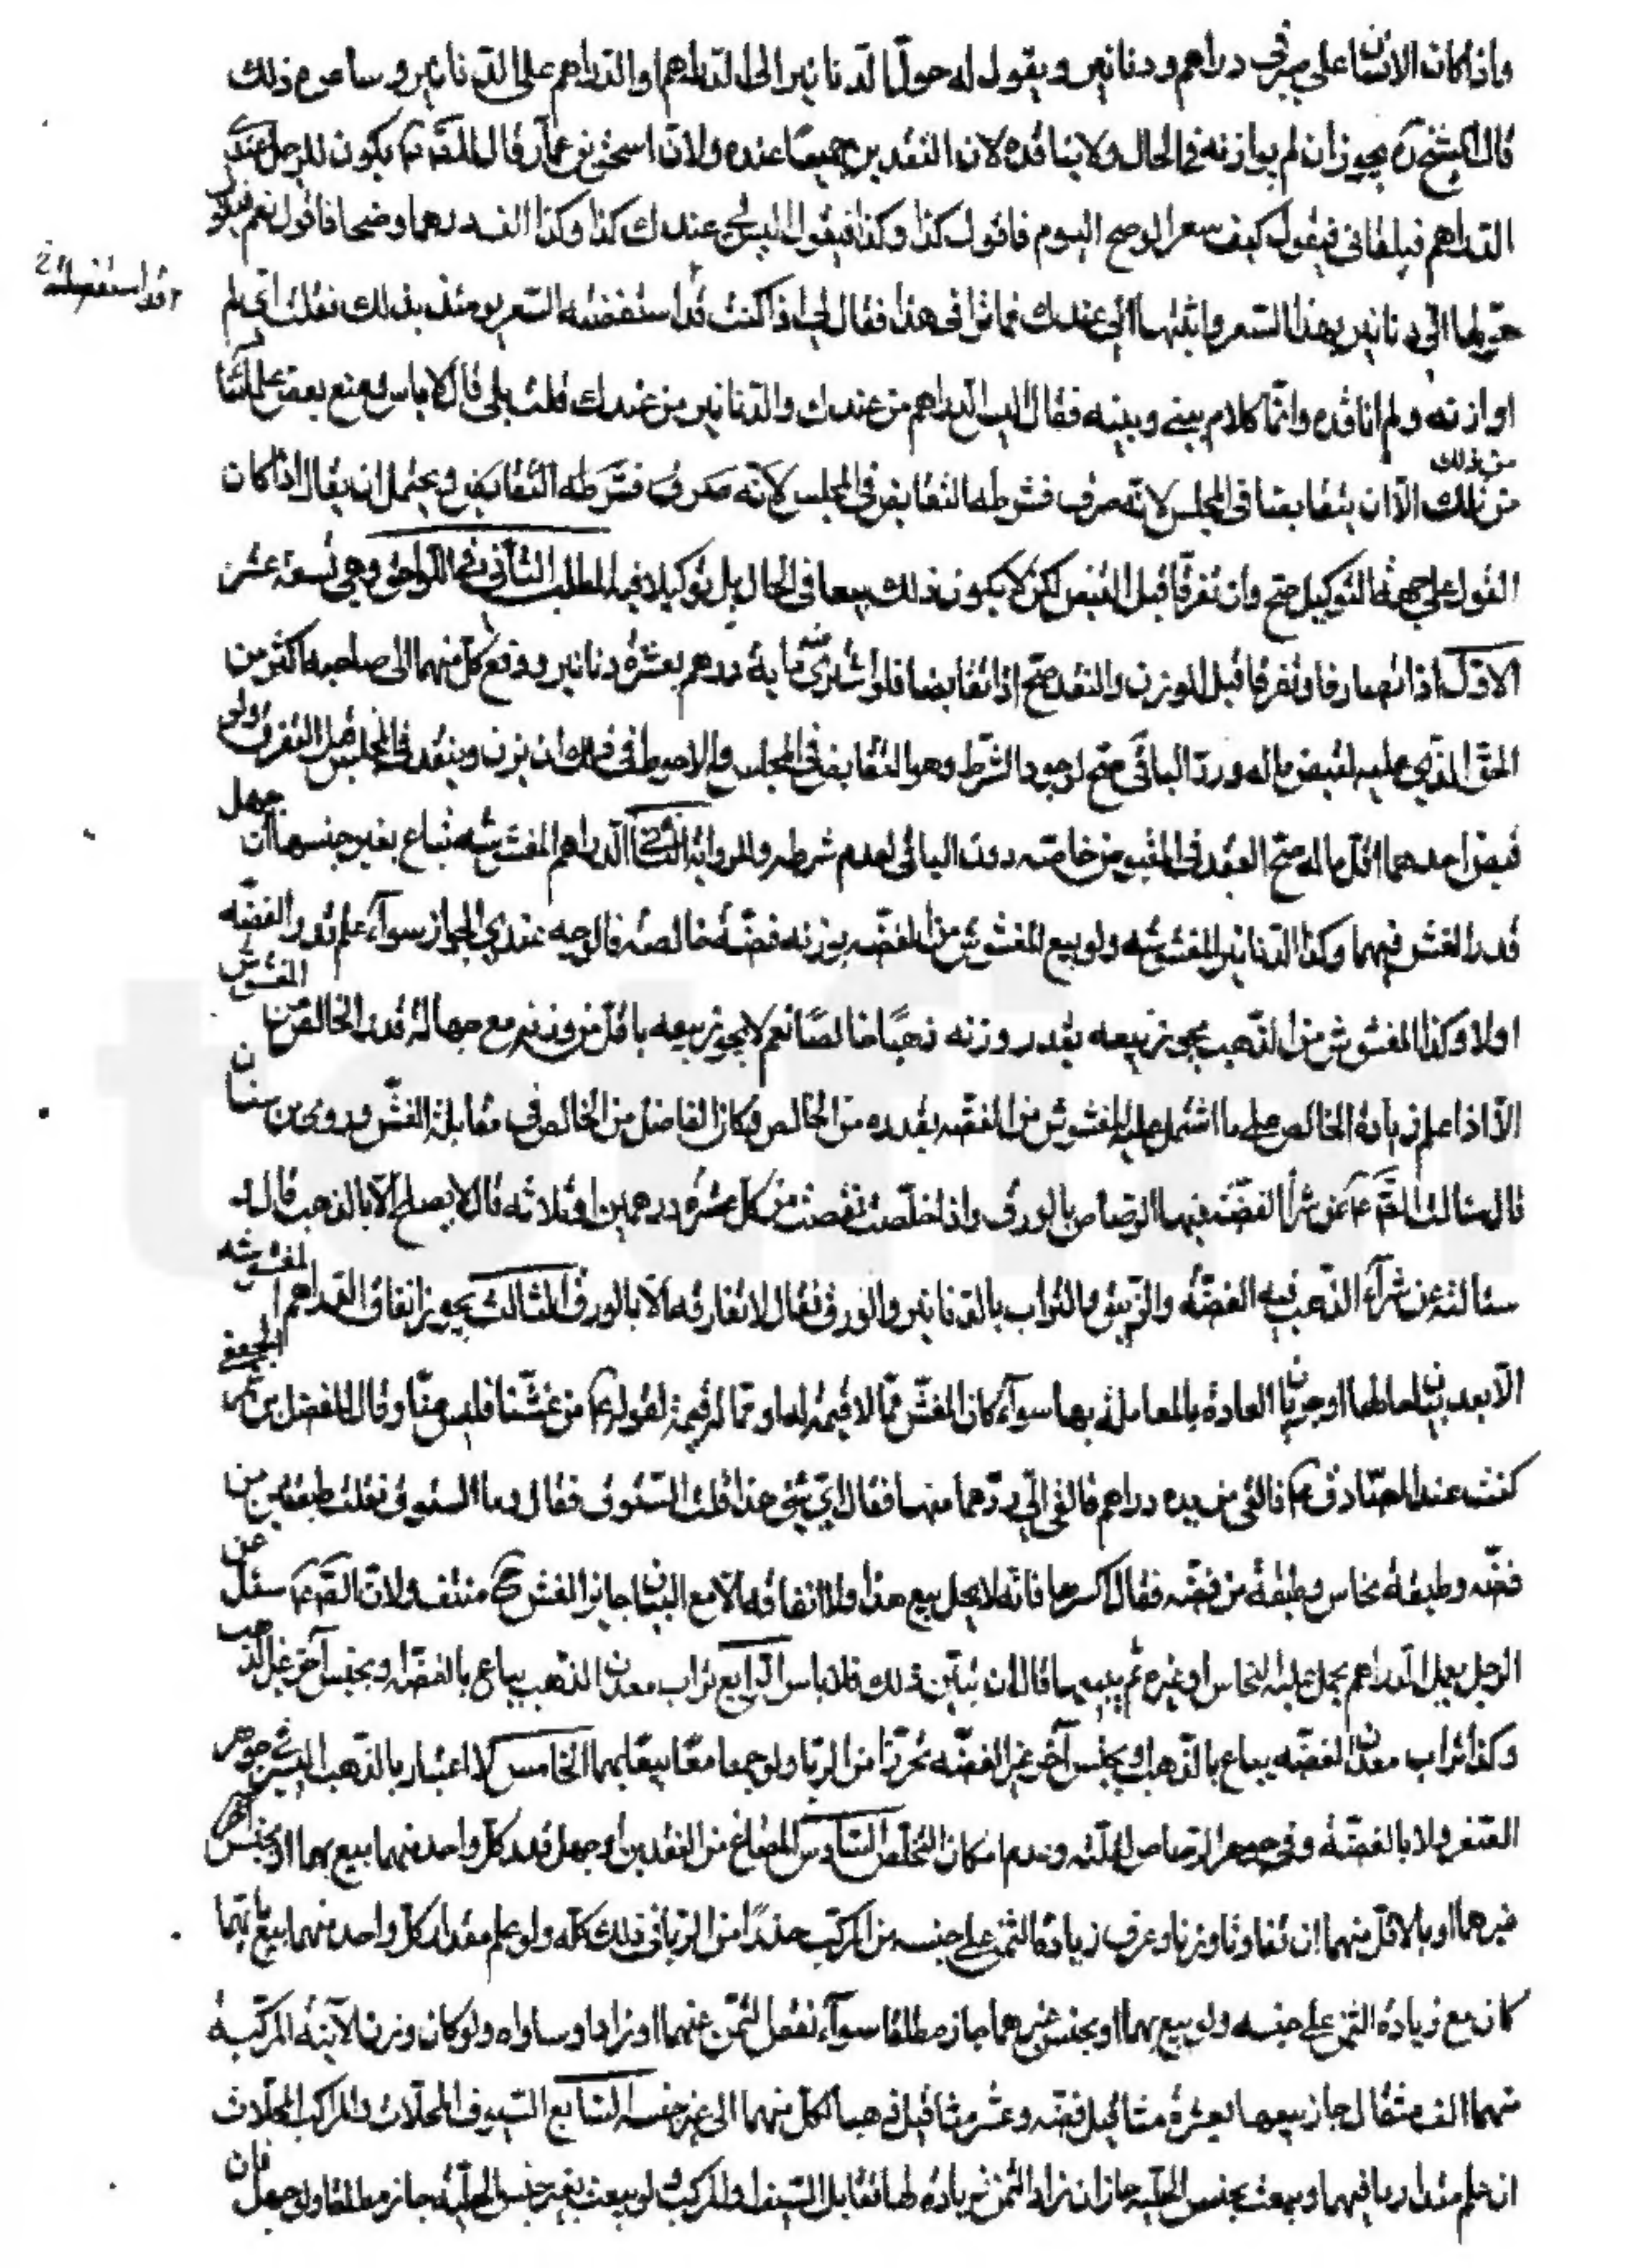 واذا كان لانسان على صيرفي دراهم ودنانير ويقول له حول الدنانير الى الدراهم والدراهم على الدنانير وساعره ذلك
قال الشيخ ره يجوز ان لم يوازنه في الحال ولا يناقده لان النقدين جميعا عنده ولان اسحق بن عمار قال للصادق ع يكون للرجل عندي
الدراهم فيلقاني فيقول كيف سعر الوضح اليوم فاقول كذا وكذا فيقول اليس لي عندك كذا وكذا الف درهما وضحا فاقول نعم فيقول
حولها الى دنانير بهذا السعر واثبتها لي عندك فما ترى في هذا فقال لي اذا كنت قد استقضيت له السعر يومئذ فلا بأس بذلك فقلت اني لم
قد استقصيت له خ
اوازنه ولم اناقده وانما كلام بيني وبينه فقال اليس الدراهم من عندك والدنانير من عندك قلت بلى قال لا باس ومنع بعض علمائنا
من ذلك
من ذلك الا ان يتقابضا في المجلس لانه صرف فشرطه التقابض في المجلس لانه صرف فشرطه التقابض ويحتمل ان يقال اذا كان
القول على جهة التوكيل صح وان تفرقا قبل القبض لكن لا يكون ذلك بيعا في الحال بل توكيلا فيه المطلب الثاني في اللواحق وهي تسعة عشر
الاول اذا تصارفا وتفرقا قبل الوزن والنقد صح اذا تقابضا فلو اشترى منه ماية درهم بعشرة دنانير ودفع كل منهما الى صاحبه اكثر من
الحق الذي عليه ليقبض ماله ورد الباقي صح لوجود الشرط وهو التقابض في المجلس والاحوط في ذلك ان يزن وينقد في المجلس قبل التفرق ولو
قبض احدهما اقل ماله صح العقد في المقبوض خاصة دون الباقي لعدم شرطه وللرواية الثاني الدراهم المغشوشة تباع بغير جنسها ان جهل
قدر الغش فيهما وكذا الدنانير المغشوشة ولو بيع المغشوش من الفضة بوزنه فضة خالصة فالوجه عندي الجواز سواء علم قدر الفضة
اولا وكذا المغشوش من الذهب يجوز بيعه بقدر وزنه ذهبا خالصا نعم لا يجوز بيعه باقل من وزنه مع جهالة قدر الخالص من المغشوش
الا اذا علم زيادة الخالص على ما اشتمل عليه المغشوش من الفضة بقدره من الخالص فكان الفاضل من الخالص في مقابلة الغش وروى بن سنان
قال سالت الصادق ع عن شراء الفضة فيها الرصاص بالورق واذا خلصت نقصت من كل عشرة درهمين او ثلاثة قال لا يصلح الا بالذهب قال
سئالته عن شراء الذهب فيه الفضة والزيبق والتراب بالدنانير والورق فقال لا تصارفه الا بالورق الثالث يجوز انفاق الدراهم المغشوشة
الا بعد بيان لحالها او جريان العادة بالمعاملة بها سواء كان الغش مما لا قيمة لها او مما له قيمة لقوله ع من غشنا فليس منا وقال المفضل بن عمر الجعفي
كنت عند الصادق ع فالقي من يده دراهم فالقى الي درهما منها فقال اي شئ هذا قلت الستوق فقال وما الستوق فقلت طبقتين من
فضة وطبقة نحاس وطبقة من فضة فقال اكسرها فانه لا يحل بيع هذا ولا انفاقه الا مع البيان جايز الغش ح منتف ولان الصادق ع سئل عن
الرجل يعمل الدراهم يحمل عليها النحاس او غيره ثم يبيعها قال ان بين ذلك فلا باس الرابع تراب معدن الذهب يباع بالفضة او بجنس آخر غير الذهب
وكذا تراب معدن الفضة يباع بالذهب او بجنس آخر غير الفضة تحرزا من الربا ولو جمعا معا بيعا بهما الخامس لا اعتبار بالذهب اليسير في جوهر
الصفر ولا بالفضة وفي جوهر الرصاص لقلته وعدم امكان التخلص السادس المصاغ من النقدين ان جهل قدر كل واحد منهما بيع بهما او بجنس آخر
غيرهما او بالاقل منهما ان تفاوتا وزنا وعرف زيادة الثمن على جنسه من المركب حذرا من الربا في ذلك كله ولو علم مقدار كل واحد منهما بيع بايهما
كان مع زيادة الثمن على جنسه ولو بيع بهما او بجنس غيرهما جاز مطلقا سواء نقص الثمن عنهما او زاد او ساواه ولو كان وزن الآنية المركبة
منهما الف مثقال جاز بيعها بعشرة مثاقيل فضة وعشر مثاقيل ذهبا لكل منهما الى غير جنسه السابع السيوف المحلات والمراكب المحلات
ان علم مقدار ما فيهما وبيعت بجنس الحلية جاز ان زاد الثمن زيادة لها تقابل السيف او المركب ولو بيعت بغير جنس الحلية جاز مطلقا ولو جهل فان